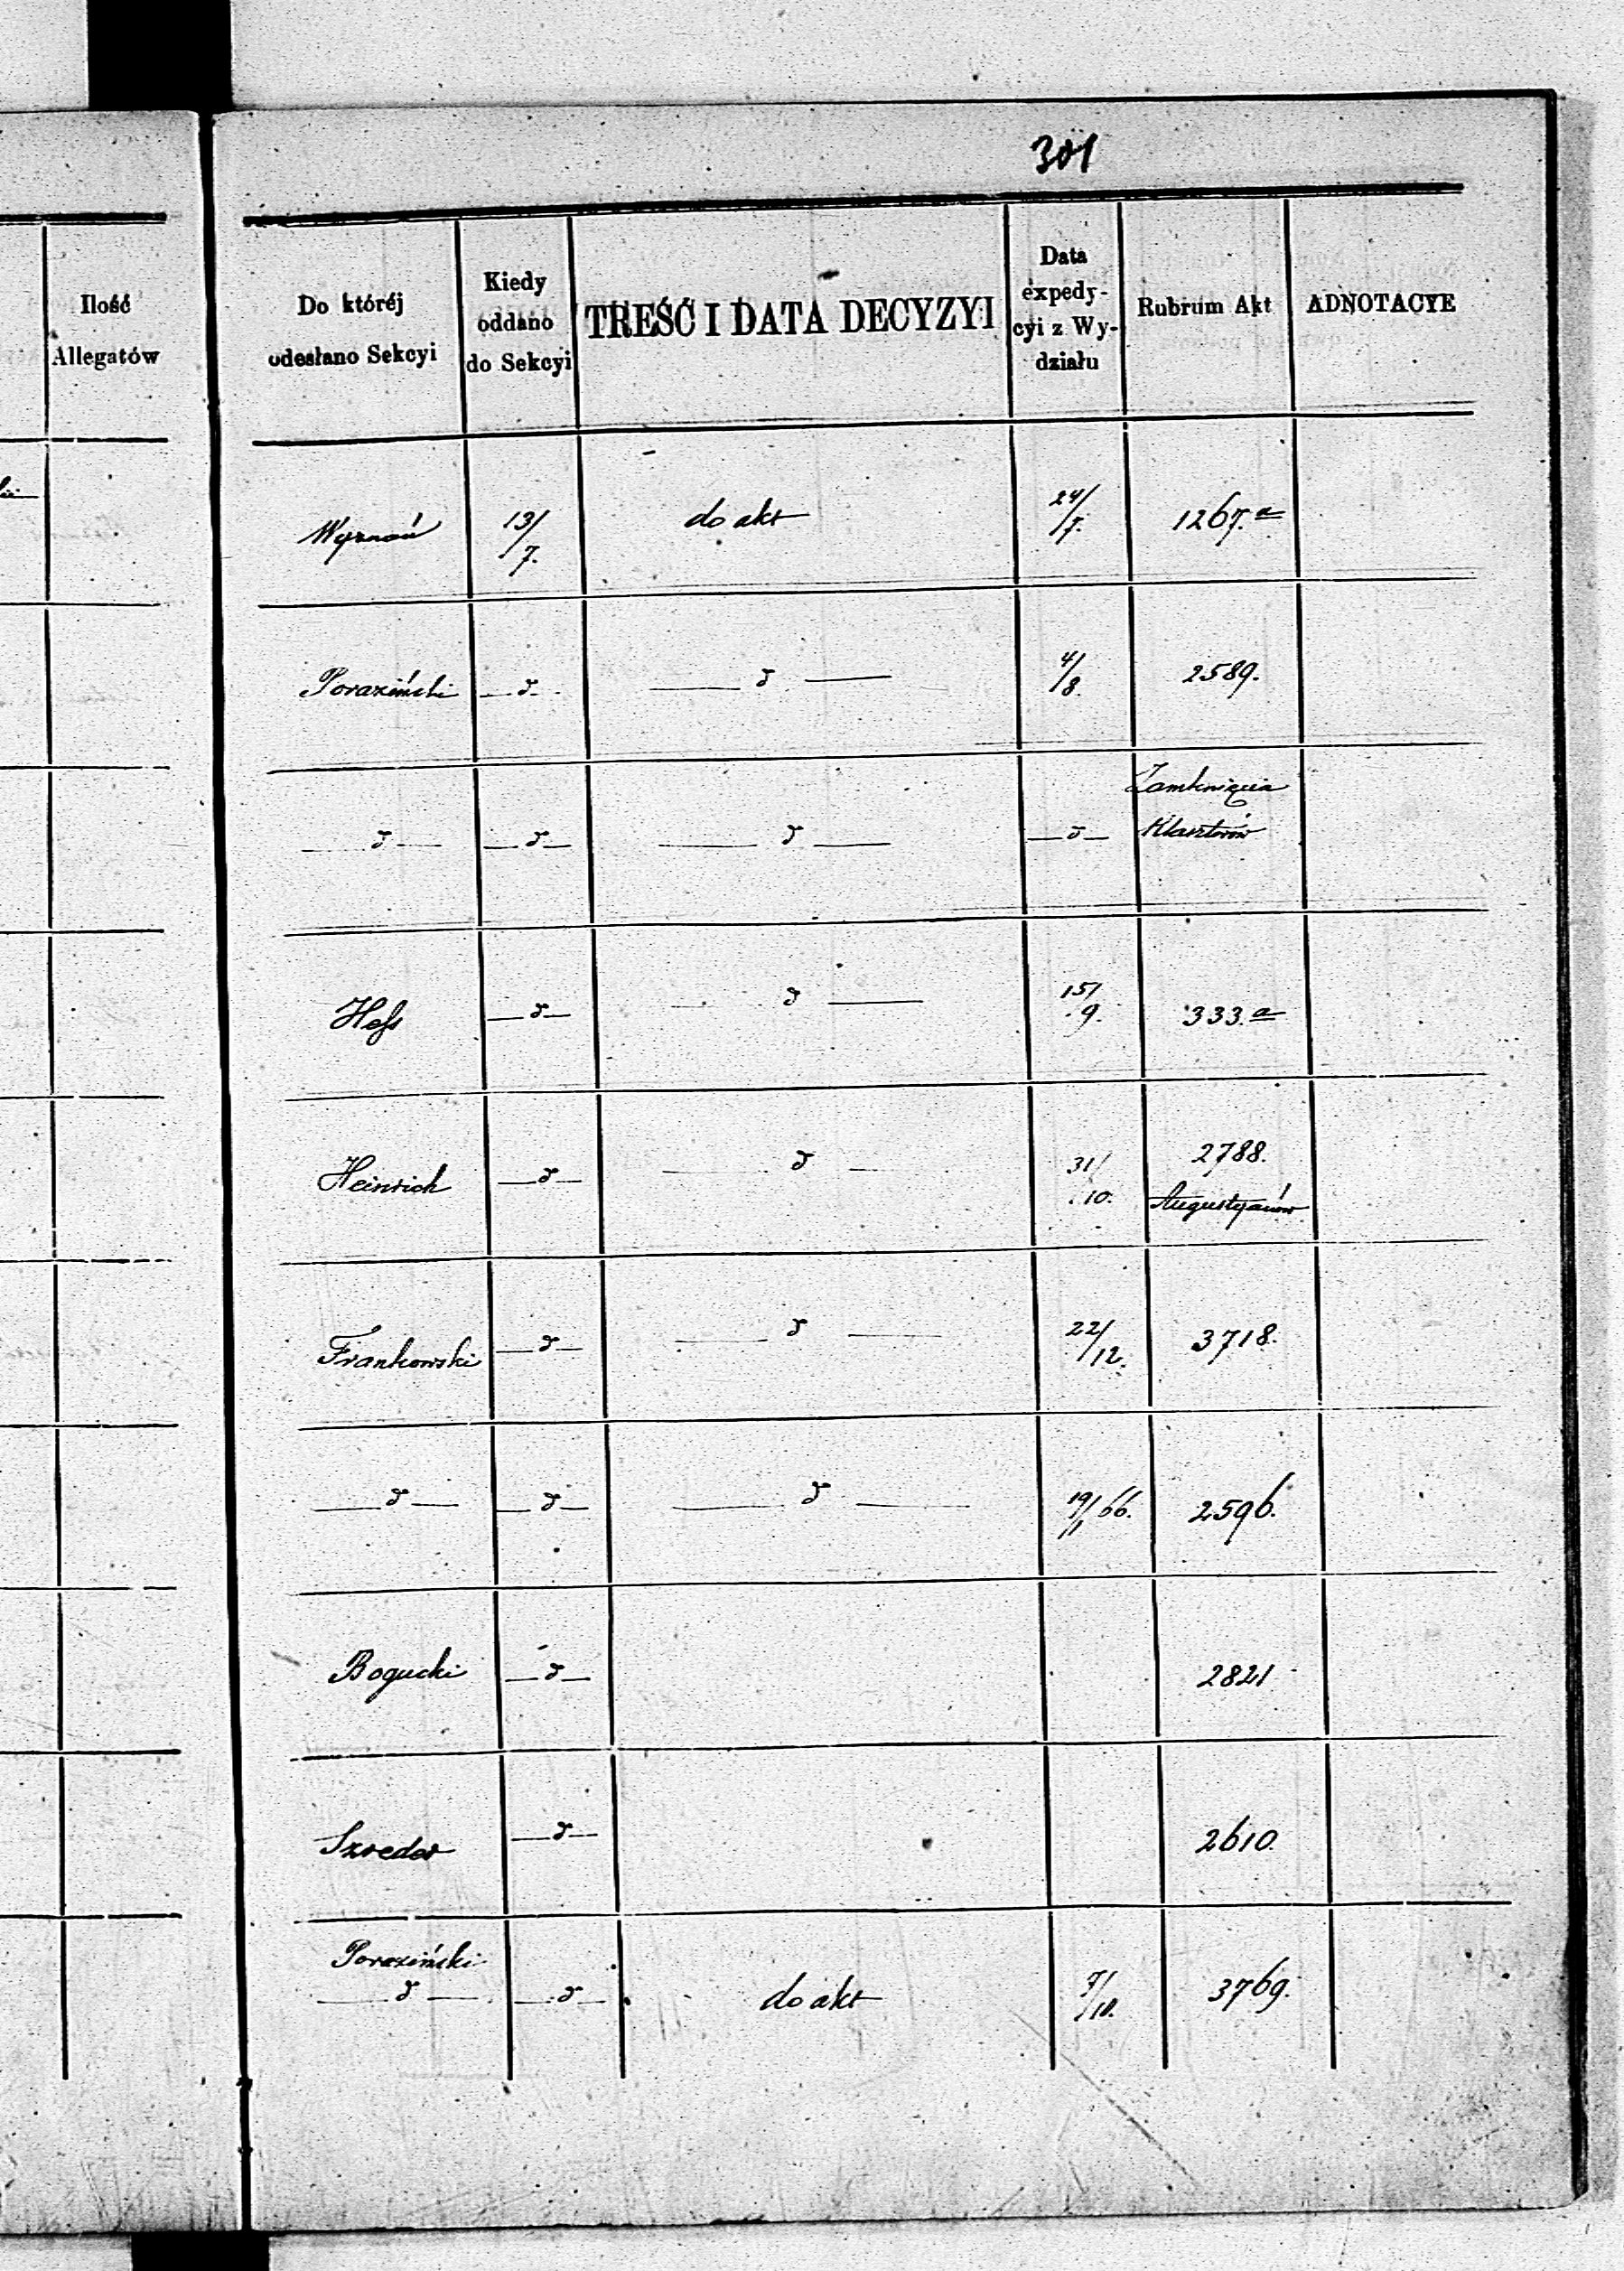 301
Ilość
Allegatów
Do któréj
odesłano Sekcyi
Kiedy
oddano
do Sekcyi
TREŚĆ I DATA DECYZYI
Data
expedy-
cyi z Wy-
działu
Rubrum Akt
ADNOTACYE
Wyznań 13/7. do akt 24/7. 1267.a
Poraziński — d — — d — 4/8. 2589.
Zamknięcia
— d — — d — — d — — d — Klasztorów
Hess — d — — d — 15/9. 333.a
Heinrich — d — — d — 31/10. 2788.
Augustyanów
Frankowski — d — — d — 22/12. 3718.
— d — — d — — d — 19/1 66. 2596.
Bogucki — d — 2821
Szreder — d — 2610.
Poraziński
— d — — d — do akt 7/10. 3769.